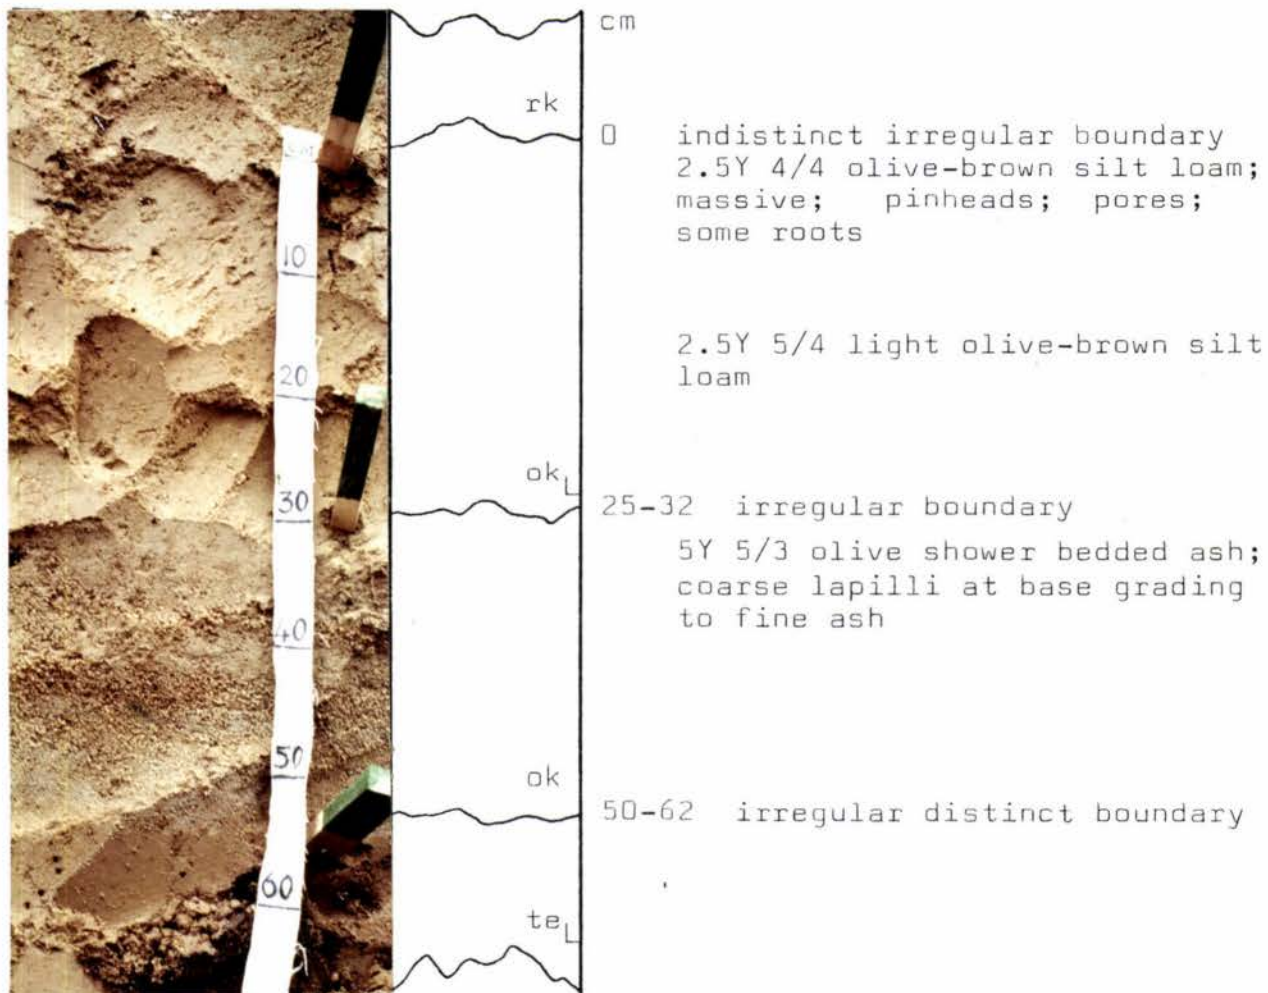 cm
rk
0 indistinct irregular boundary
2.5Y 4/4 olive-brown silt loam;
massive; pinheads; pores;
some roots
10
2.5Y 5/4 light olive-brown silt
loam
20
ok L
30
25-32 irregular boundary
5Y 5/3 olive shower bedded ash;
coarse lapilli at base grading
to fine ash
40
50
ok
50-62 irregular distinct boundary
60
te L